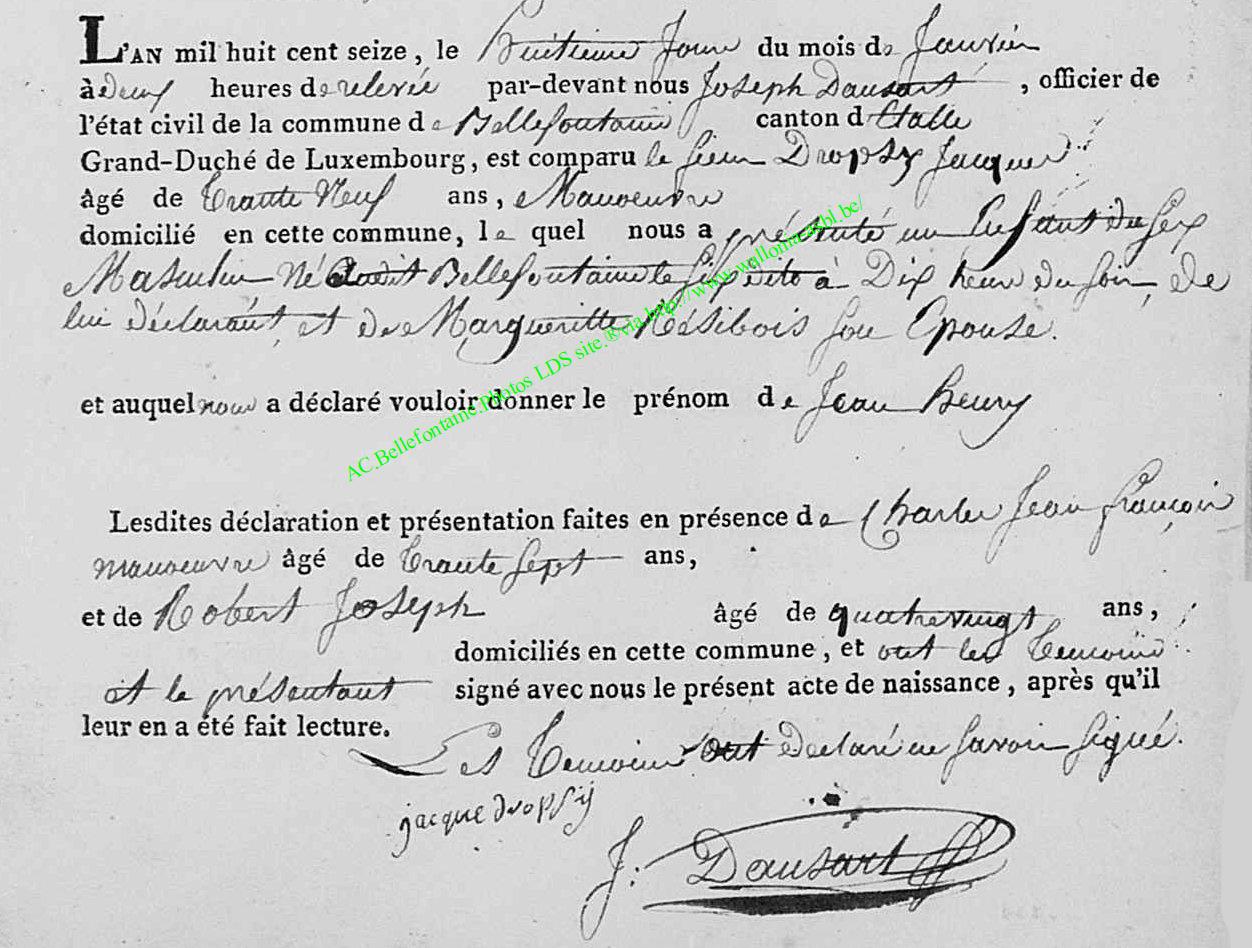 L'AN mil huit cent seize, le huitieme Jour du mois de Janvier
à deux heures de relevée par-devant nous Joseph Dausart, officier de
l'état civil de la commune de Bellefontaine canton d'Etalle
Grand-Duché de Luxembourg, est comparu le sieur Dropsy Jacques
âgé de trante Neuf ans, Manoeuvre
domicilié en cette commune, le quel nous a présenté un Enfant du sex
Masculin Né audit Bellefontaine le six dito à Dix heure du soir, de
lui déclarant, et de Margueritte Nésibois son Epouse.
et auquel nous a déclaré vouloir donner le prénom de Jean Henry
Lesdites déclaration et présentation faites en présence de Charler Jean françois
manoeuvre âgé de trante sept ans,
et de Robert Joseph âgé de quatrevingt ans,
domiciliés en cette commune, et ont les temoins
et le présentant signé avec nous le présent acte de naissance, après qu'il
leur en a été fait lecture.
Les temoins ont Déclaré ne savoir signé.
jacque dropsy
J: Dausart
AC.Bellefontaine.Photos LDS site.®via http://www.wallonia-asbl.be/